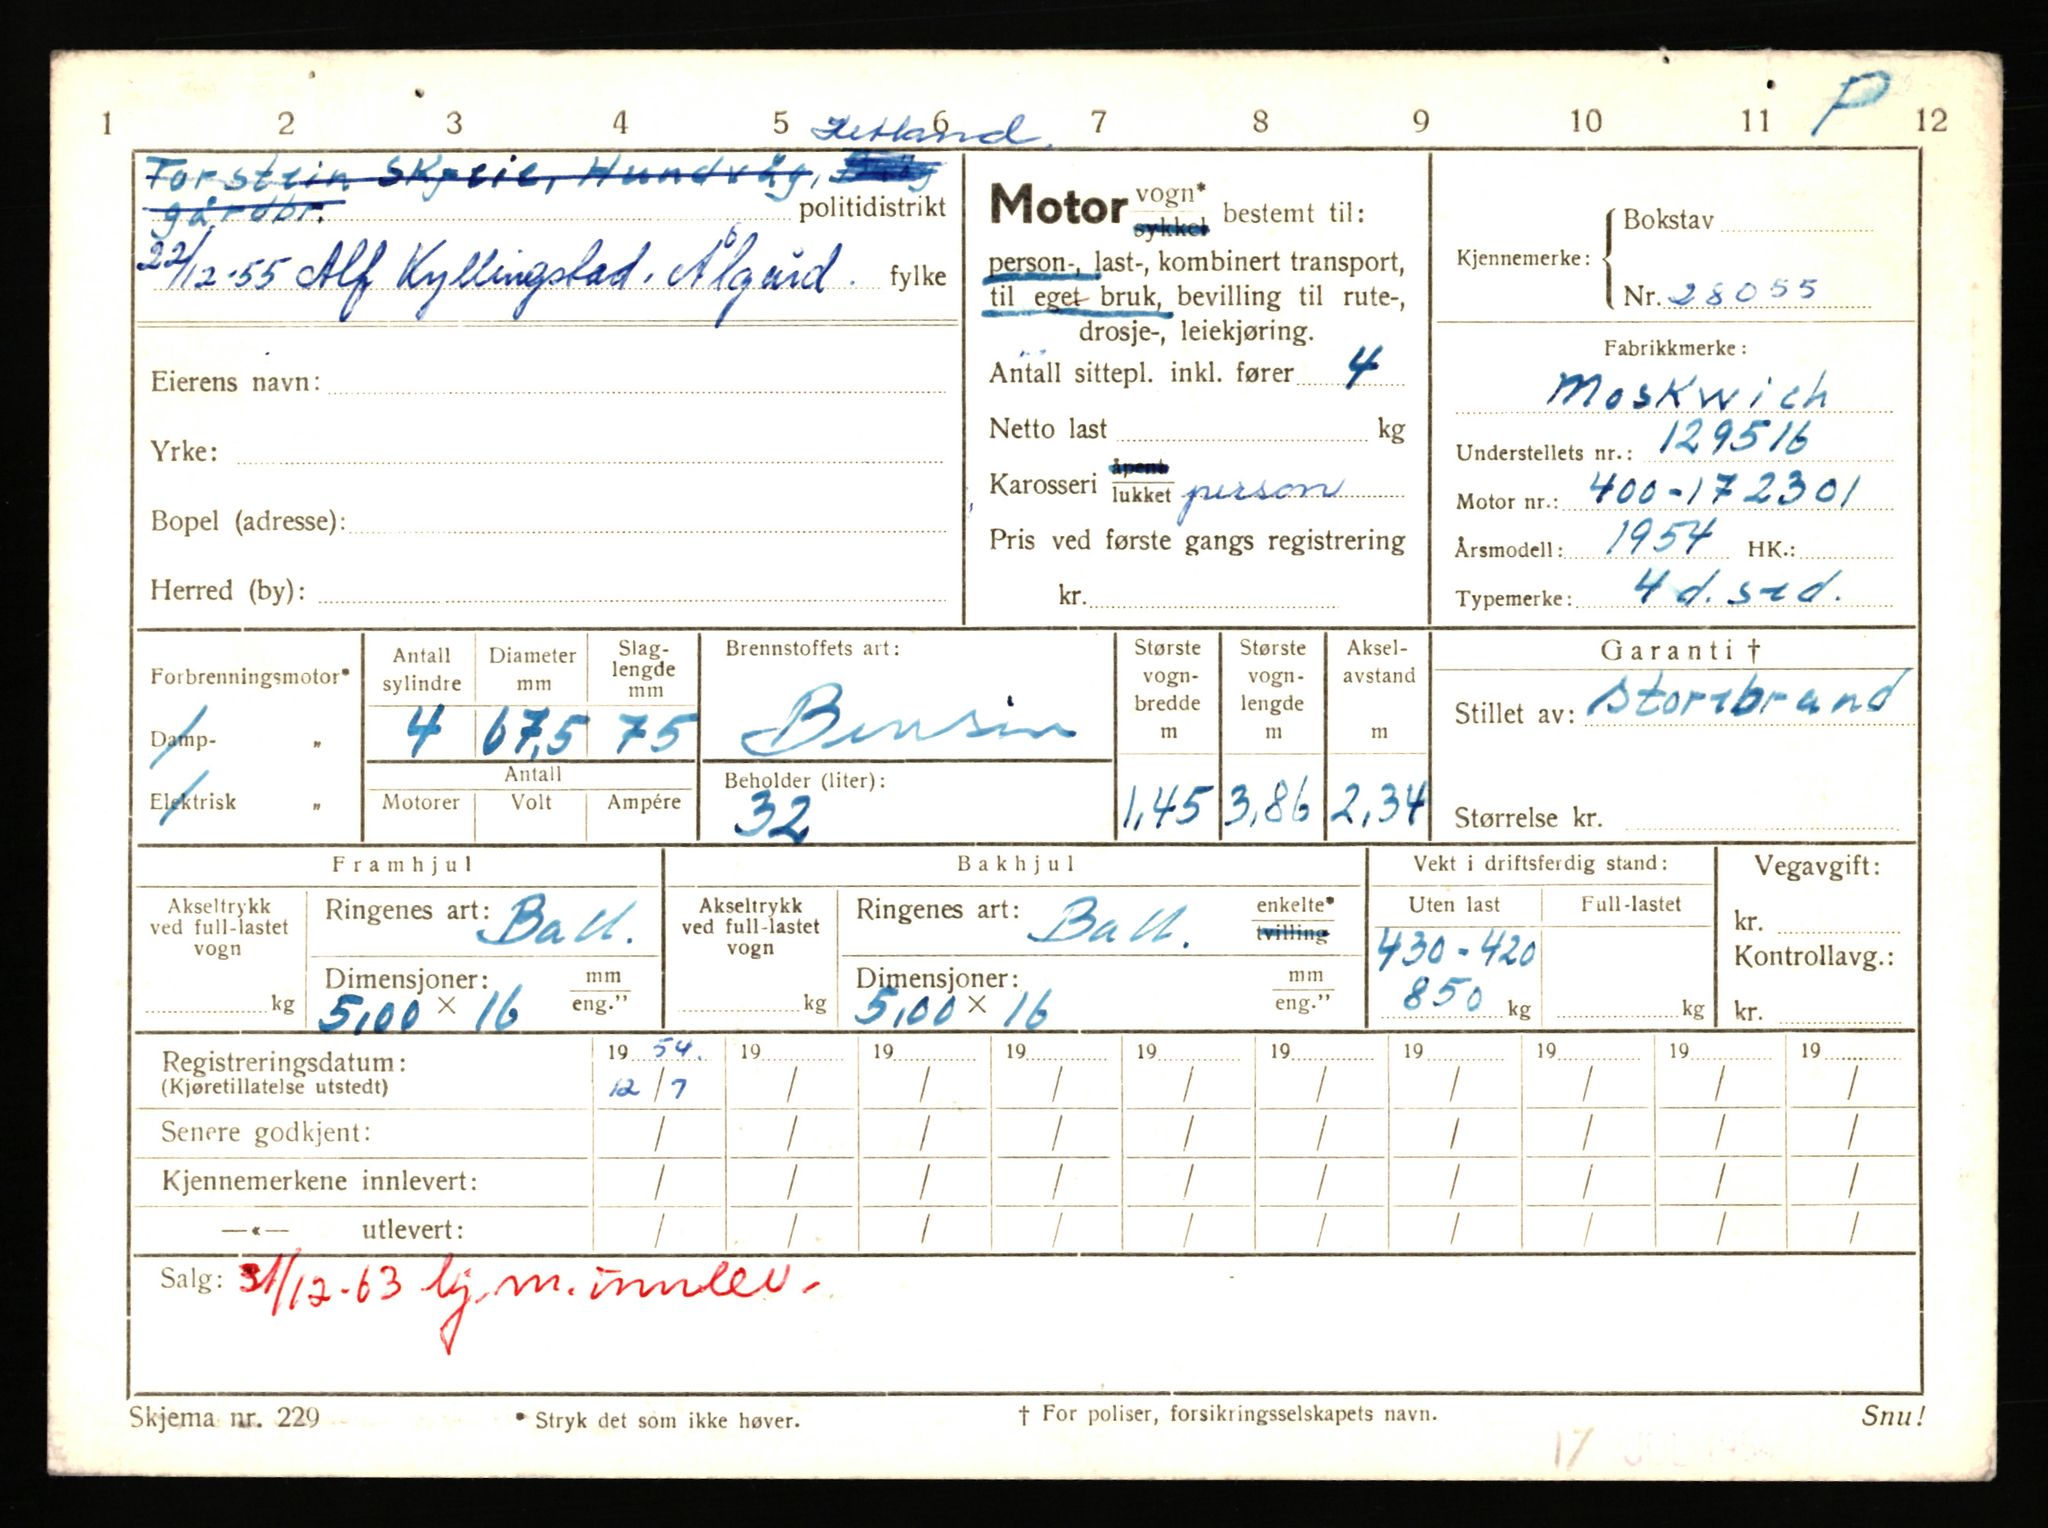 P
1 2 3 4 5 6 7 8 9 10 11 12
Hetland.
Torstein Skjeie, Hundvåg,
gårdbr. politidistrikt
22/12-55 Alf Kyllingstad. Ålgård. fylke
Eierens navn:
Yrke:
Bopel (adresse):
Herred (by):
Motor vogn* sykkel bestemt til:
person-, last-, kombinert transport,
til eget bruk, bevilling til rute-,
drosje-, leiekjøring.
Antall sittepl. inkl. fører 4
Netto last kg
Karosseri åpent lukket person
Pris ved første gangs registrering
kr.
Kjennemerke: Bokstav
Nr. 28055
Fabrikkmerke:
Moskwich
Understellets nr.: 129516
Motor nr.: 400-172301
Årsmodell: 1954 HK.:
Typemerke: 4 d. sed.
Forbrenningsmotor*
Damp- „
Elektrisk „
Antall sylindre
4
Diameter mm
67,5
Slag-
lengde
mm
75
Antall
Motorer Volt Ampére
Brennstoffets art:
Bensin
Beholder (liter):
32
Største
vogn-
bredde
m
1,45
Største
vogn-
lengde
m
3,86
Aksel-
avstand
m
2,34
Garanti †
Stillet av: Storebrand
Størrelse kr.
Framhjul
Akseltrykk
ved full-lastet
vogn
kg
Ringenes art: Ball.
Dimensjoner: mm
5,00 × 16 eng.”
Bakhjul
Akseltrykk
ved full-lastet
vogn
kg
Ringenes art: Ball. enkelte*
tvilling
Dimensjoner: mm
5,00 × 16 eng.”
Vekt i driftsferdig stand:
Uten last Full-lastet
430-420
850 kg kg
Vegavgift:
kr.
Kontrollavg.:
kr.
Registreringsdatum: 19 54. 19 19 19 19 19 19 19 19 19
(Kjøretillatelse utstedt) 12/7 / / / / / / / / /
Senere godkjent: / / / / / / / / / /
Kjennemerkene innlevert: / / / / / / / / / /
—«— utlevert: / / / / / / / / / /
Salg: 31/12-63 kj.m. innlev.
Skjema nr. 229 * Stryk det som ikke høver. † For poliser, forsikringsselskapets navn. Snu!
17